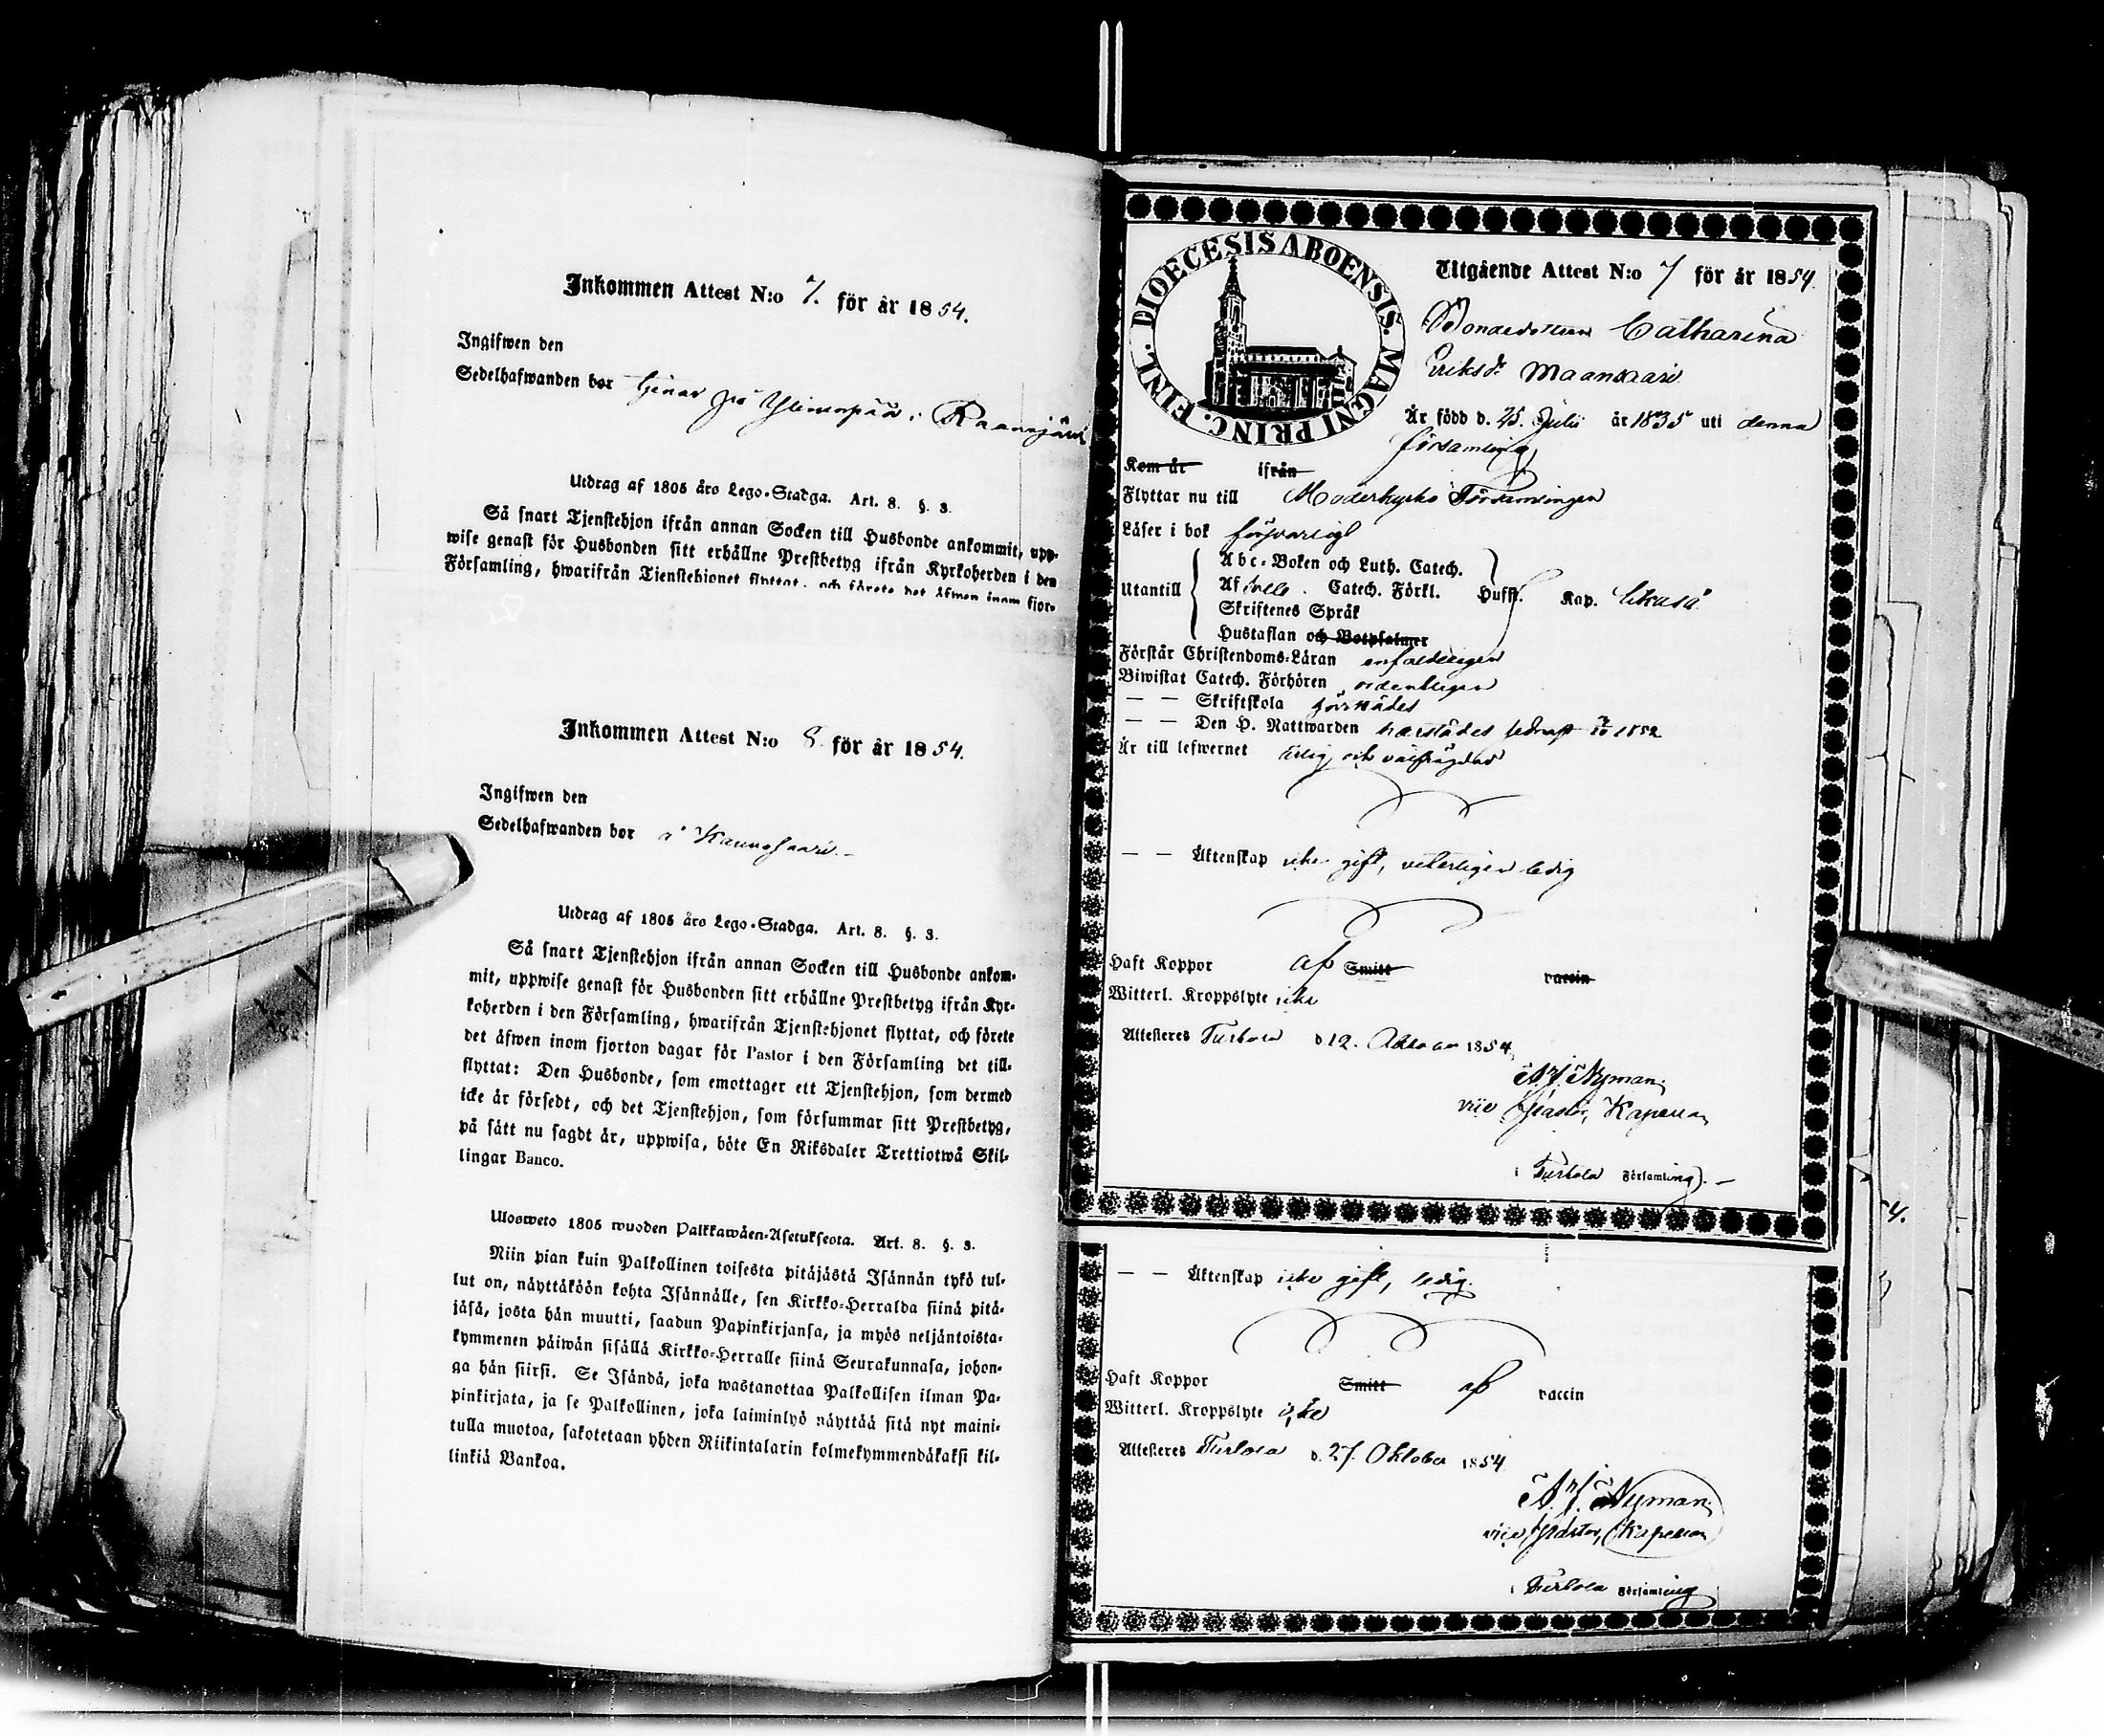 Inkommen Attest N:o 7. för år 1854.
Ingifwen den
Sedelhafwanden bor tjenar på Ylimaapää i Raanujärvi
Utdrag af 1805 års Lego-Stadga. Art. 8. §. 3.
Så snart Tjenstehjon ifrån annan Socken till Husbonde ankommit, upp-
wise genast för Husbonden sitt erhållne Prestbetyg ifrån Kyrkoherden i den
Församling, hwarifrån Tjenstehjonet flyttat, och förete det äfwen inom fjor-
Inkommen Attest N:o 8 för år 1854.
Ingifwen den
Sedelhafwanden bor å
Utdrag af 1805 års Lego-Stadga. Art. 8. §. 3.
Så snart Tjenstehjon ifrån annan Socken till Husbonde ankom-
mit, uppwise genast för Husbonden sitt erhållne Prestbetyg ifrån Kyr-
koherden i den Församling, hwarifrån Tjenstehjonet flyttat, och förete
det äfwen inom fjorton dagar för Pastor i den Församling det till-
flyttat: Den Husbonde, som emottager ett Tjenstehjon, som dermed
icke är försedt, och det Tjenstehjon, som försummar sitt Prestbetyg,
på sätt nu sagdt är, uppwisa, böte En Riksdaler Trettiotwå Skil-
lingar Banco.
Ulosweto 1805 wuoden Palkkawäen-Asetuksesta. Art. 8. §. 3.
Niin pian kuin Palkollinen toisesta pitäjästä Isännän tykö tul-
lut on, näyttäköön kohta Isännälle, sen Kirkko-Herralda siinä pitä-
jäsä, josta hän muutti, saadun Papinkirjansa, ja myös neljäntoista-
kymmenen päiwän sisällä Kirkko-Herralle siinä Seurakunnasa, johon-
ga hän siirsi. Se Isändä, joka wastanottaa Palkollisen ilman Pa-
pinkirjata, ja se Palkollinen, joka laiminlyö näyttää sitä nyt maini-
tulla muotoa, sakotetaan yhden Riikintalarin kolmekymmendäkaksi kil-
linkiä Bankoa.
DIOECESIS ABOENSIS. MAGNI PRINC. FINL.
Utgående Attest N:o 7 för år 1854.
Bondedottren Catharina
Eriksdr Maansaari
Är född d. 25. Julii år 1835 uti denna
församling
Kom år ifrån
Flyttar nu till Moderkyrko Församlingen
Läser i bok försvarligt
Utantill
Abc-Boken och Luth. Catech.
Af Catech. Förkl. Hufst. Kap. likaså
Skriftenes Språk
Hustaflan och Botpsalmer
Förstår Christendoms-Läran enfaldeligen
Biwistat Catech. Förhören ordentligen
— — Skriftskola
— — Den H. Nattwarden härstädes sednast 1852
Är till lefwernet ärlig och välfrägdad
— — Äktenskap icke gift, veterligen ledig
Haft Koppor af Smitt vaccin
Witterl. Kroppslyte icke
Attesteres Turtola d 12. October 1854
A. J. Nyman,
vice Pastor, Kapellan
i Turtola Församling. —
— — Äktenskap icke gift, ledig.
Haft Koppor Smitt af vaccin
Witterl. Kroppslyte icke
Attesteres Turtola d. 27. Oktober 1854
A. J. Nyman,
vice Pastor, Kapellan
i Turtola Församling